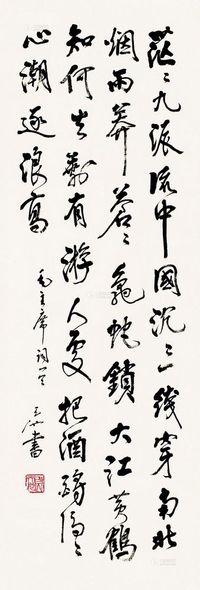 茫〻九派流中國沉〻一线穿南北
烟雨莽苍〻龜蛇鎖大江黄鹤
知何去剩有游人处把酒酹滔〻
心潮逐浪高
毛主席詞一首
书